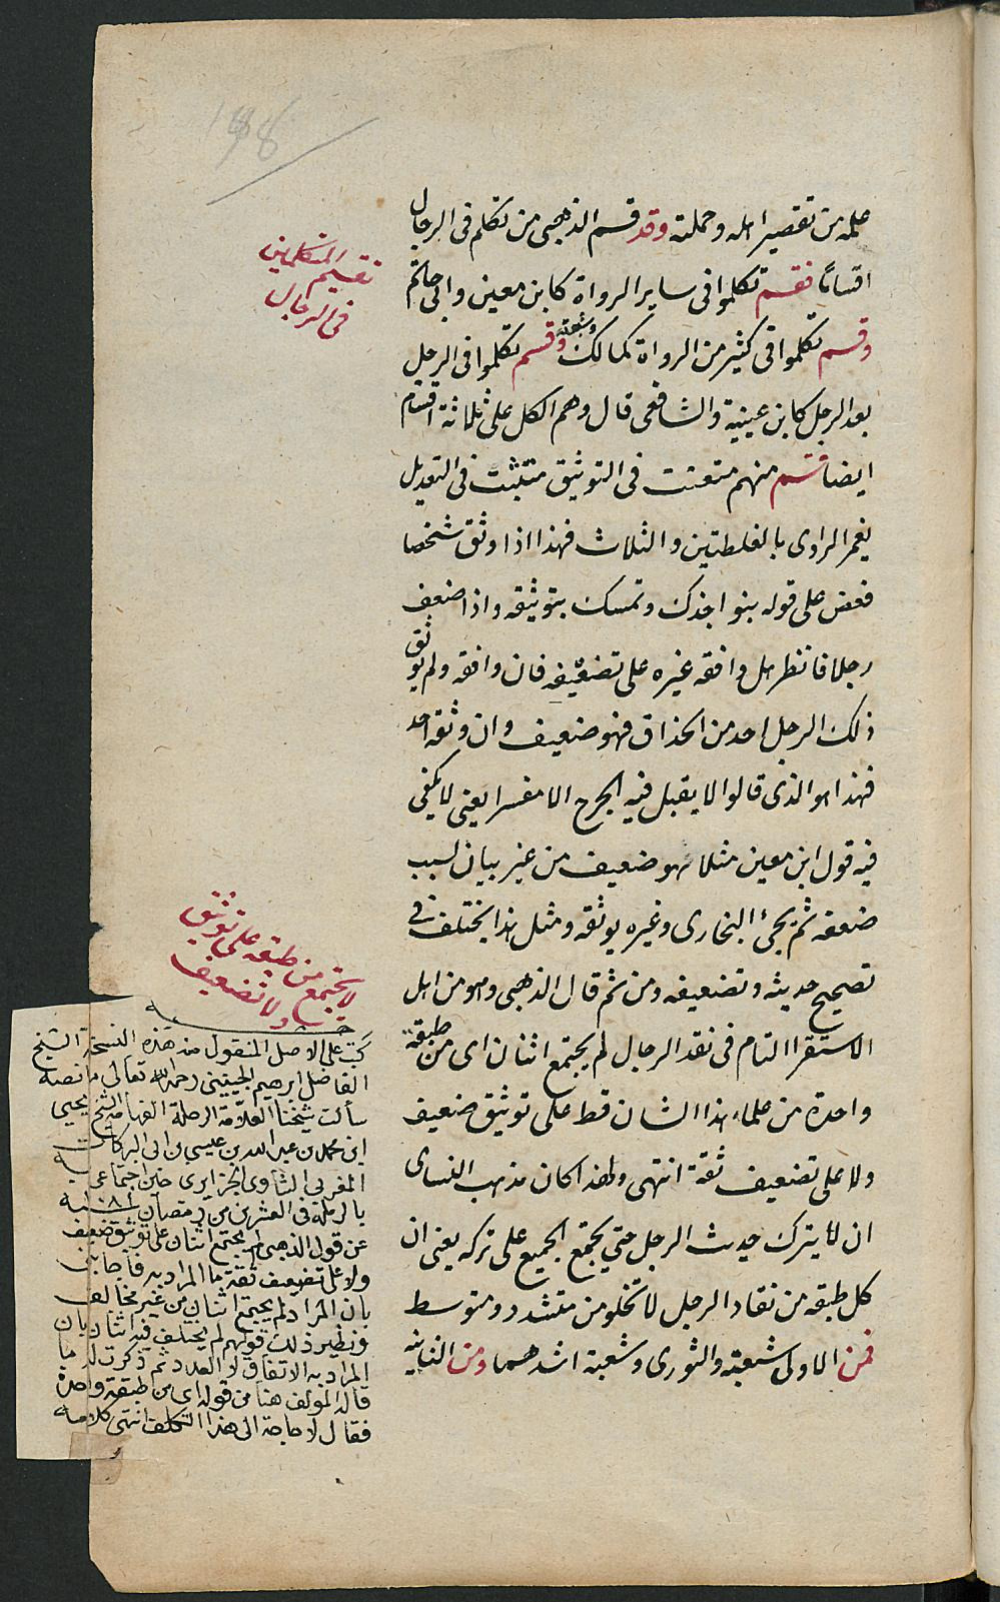 علمه من تقصير اهله وحملته وقد قسم الذهبي من تكلم في الرجال
اقساما فقسم تكلموا في ساير الرواة كابن معين وابي حاتم
وقسم تكلموا في كثير من الرواة كمالك وشعبة وقسم تكلموا في الرجل
بعد الرجل كابن عيينة والشافعي قال وهم الكل على ثلاثة اقسام
ايضا قسم منهم متعنت في التوثيق متثبت في التعديل
يغمز الراوي بالغلطتين والثلاث فهذا اذا وثق شخصا
فعض على قوله بنواجذك وتمسك بتوثيقه واذا ضعف
رجلا فانظر هل وافقه غيره على تضعيفه فان وافقه ولم يوثق
ذلك الرجل احد من الحذاق فهو ضعيف وان وثقه احد
فهذا هو الذي قالوا لا يقبل فيه الجرح الا مفسرا يعني لا يكفي
فيه قول ابن معين مثلا هو ضعيف من غير بيان لسبب
ضعفه ثم يجئ البخاري وغيره يوثقه ومثل هذا يختلف في
تصحيح حديثه وتضعيفه ومن ثم قال الذهبي وهو من اهل
الاستقرا التام في نقد الرجال لم يجتمع اثنان اي من طبقة
واحدة من علماء هذا الشان قط على توثيق ضعيف
ولا على تضعيف ثقة انتهى ولهذا كان مذهب النساى
ان لا يترك حديث الرجل حتي يجتمع الجميع على تركه يعني ان
كل طبقه من نقاد الرجل لا تخلو من متشدد ومتوسط
فمن الاولى شعبة والثوري وشعبة اشدهما ومن الثانيه
تقسيم المتكلمين
في الرجال
لا يجتمع من طبقه على توثيق
ولا تضعيف
كتب على الاصل المنقول منه هذه النسخة الشيخ
الفاضل ابرهيم الجينيني رحمه الله تعالى ما نصه
سألت شيخنا العلامة الرحلة الفهامة الشيخ يحيى
ابن محمد بن عبد الله بن عيسى بن ابي البركات
المغربي الشاوي الجزايري حين اجتماعي به
بالرملة في العشرين من رمضان سنة ١٠٨١
عن قول الذهبي لم يجتمع اثنان على توثيق ضعيف
ولا على تضعيف ثقة ما المراد به فاجابني
بان المراد لم يجتمع اثنان من غير مخالف
ونظير ذلك قولهم لم يختلف فيه اثنان بان
المراد به الاتفاق لا العدد ثم ذكرت له ما
قاله المولف هنا من قوله اي من طبقة واحدة
فقال لا حاجة الى هذا التكلف انتهى كلامه